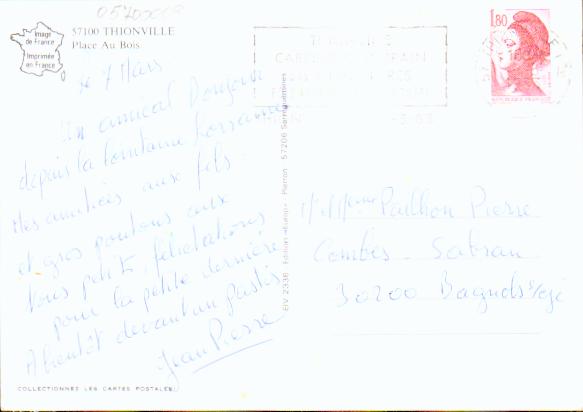 05700009
Image
de France
Imprimée
en France
57100 THIONVILLE
Place Au Bois
le 7 Mars
Un amical Bonjour
depuis la lointaine Lorraine
Mes amitiés aux fils.
et gros poutous aux
tous petits, félicitations
pour la petite dernière
A bientôt devant un pastis
Jean Pierre
COLLECTIONNEZ LES CARTES POSTALES
BV 2336 Editions «Europ» Pierron 57206 Sarreguemines
1,80
REPUBLIQUE FRANÇAISE
M. Mme Pailhon Pierre
Combes - Sabran
30200 Bagnols s/Cèze